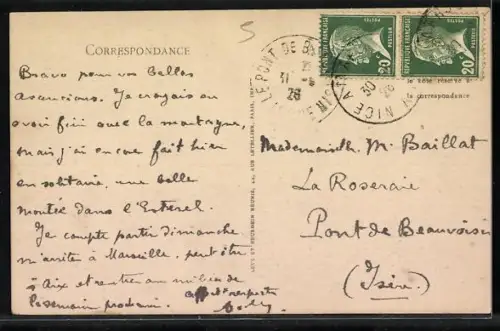 CORRESPONDANCE
Bravo pour vos belles
ascensions. Je croyais en
avoir fini avec la montagne,
mais j'ai encore fait hier
en solitaire, une belle
montée dans l'Esterel.
Je compte partir dimanche
m'arrêter à Marseille, peut être
à Aix et rentrer au milieu de
la semaine prochaine.
LEVY ET NEURDEIN REUNIS, 44, RUE LETELLIER, PARIS
5
REPUBLIQUE FRANÇAISE
POSTES
20
REPUBLIQUE FRANÇAISE
POSTES
20
LE PONT DE B
31
26
ISERE
NICE
30
26
la correspondance
Mademoiselle M. Baillat
La Roseraie
Pont de Beauvoisin
(Isère)